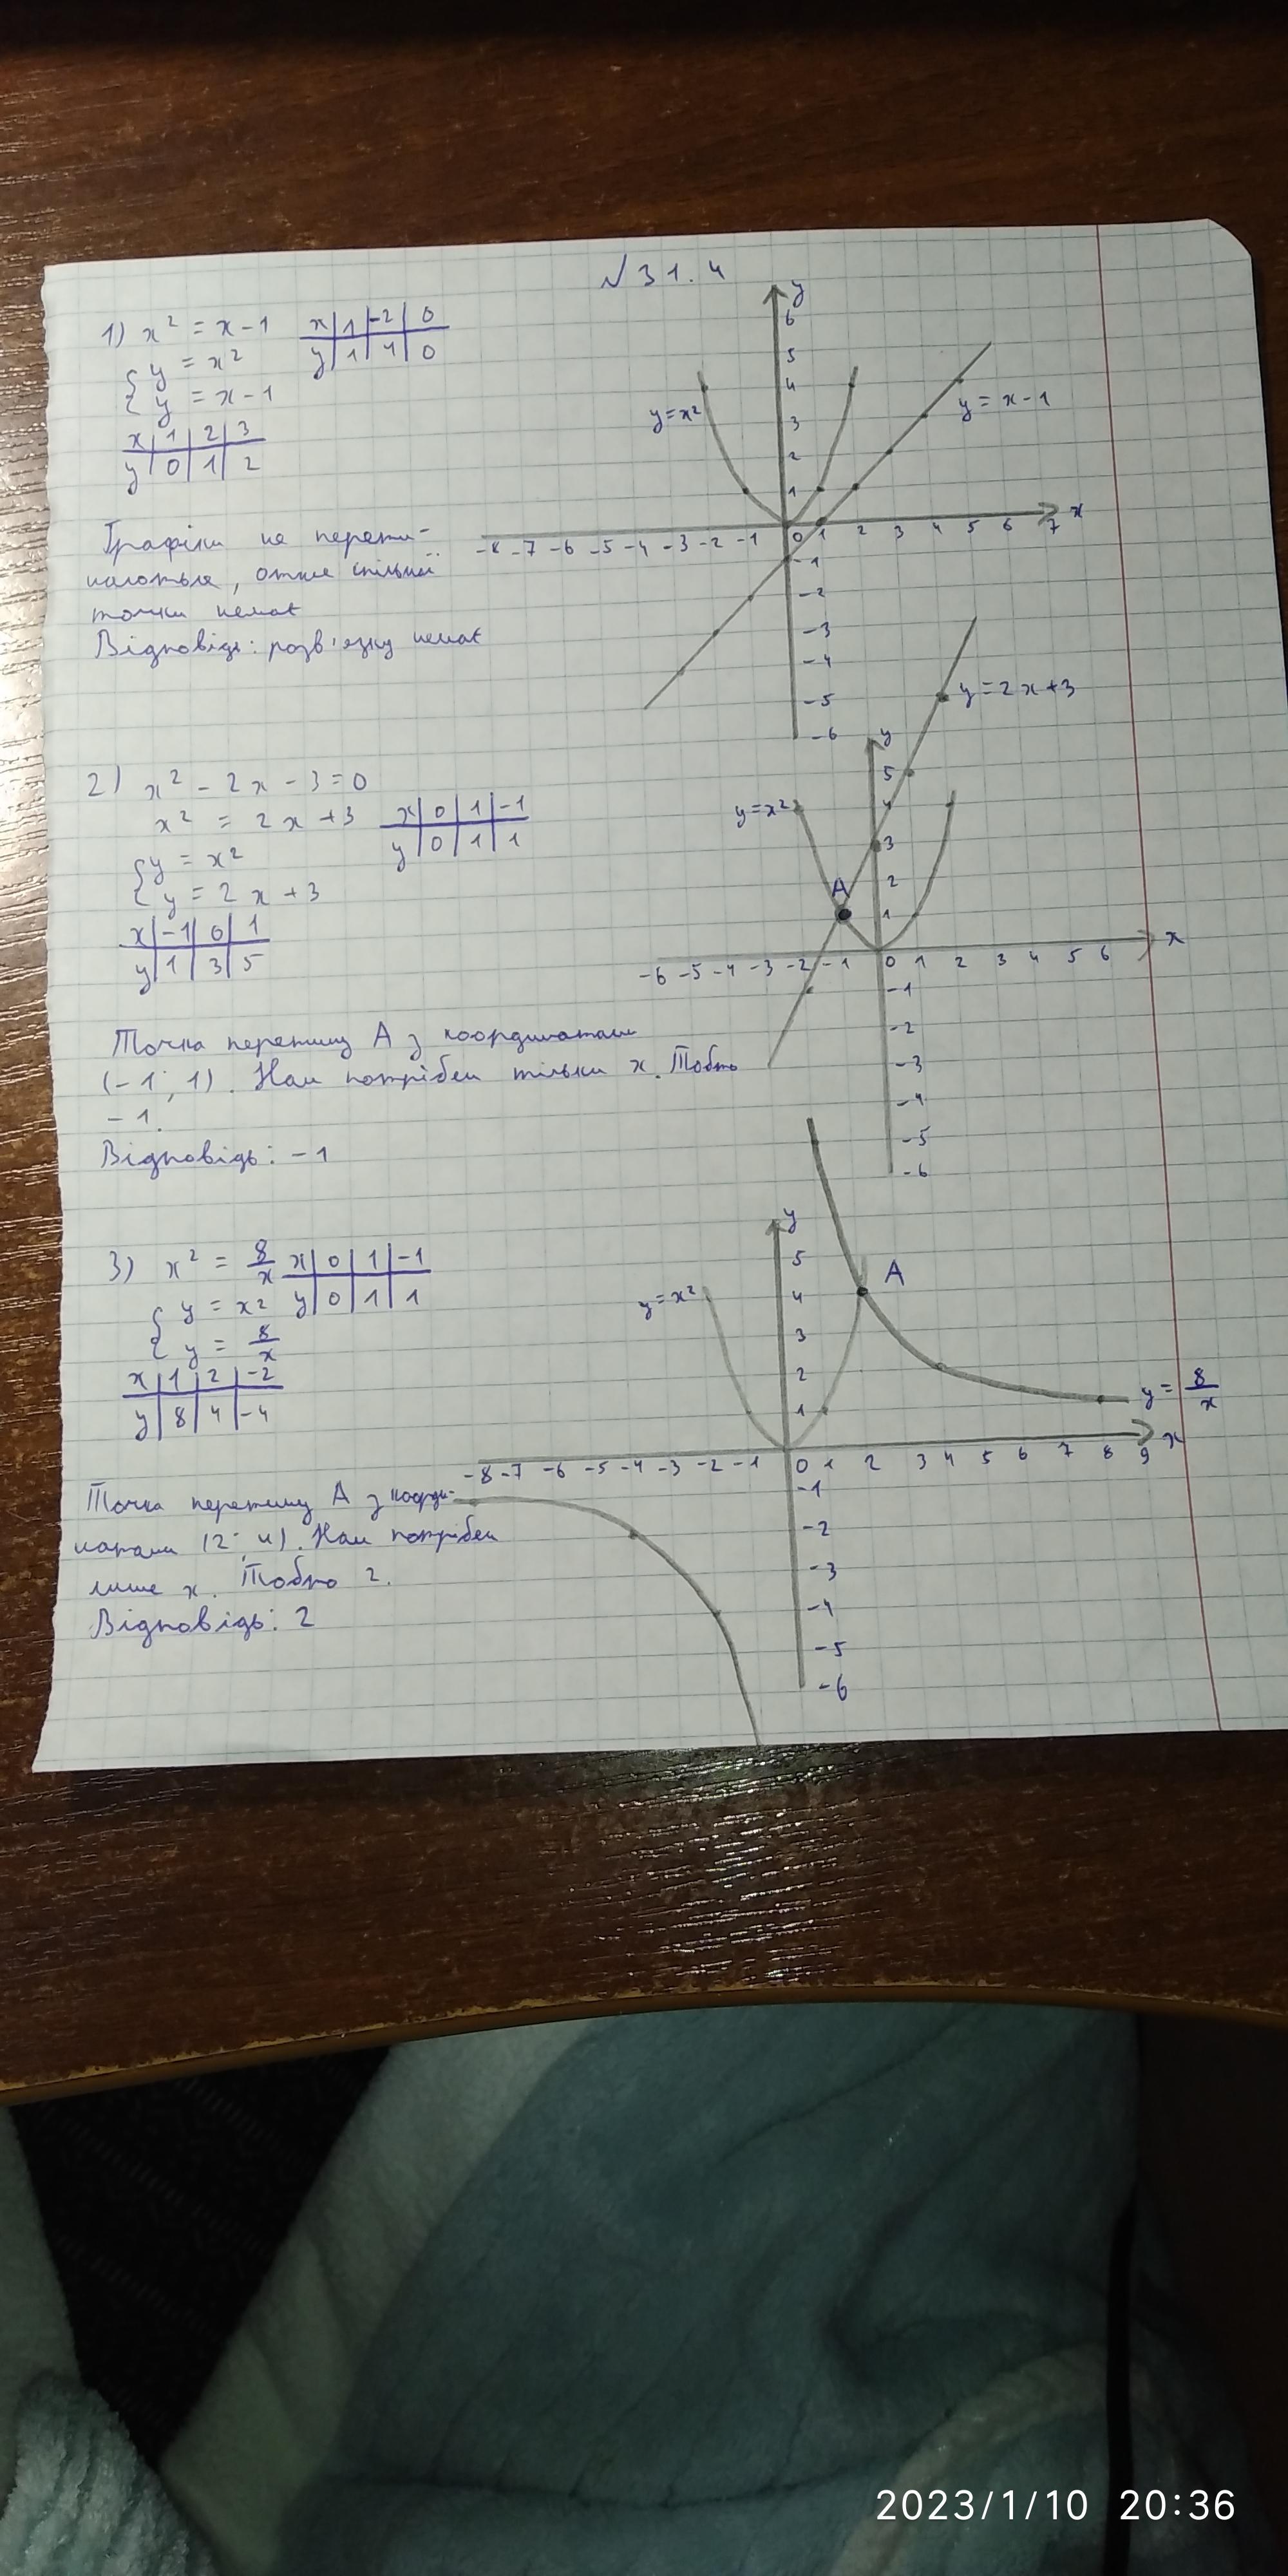 № 31.4
1) x² = x-1
x | 1 | -2 | 0
y | 1 | 4 | 0
{ y = x²
{ y = x-1
x | 1 | 2 | 3
y | 0 | 1 | 2
Графіки не перети-
наються, отже спільної
точки немає
Відповідь: розв'язку немає
y
6
5
4
3
2
1
y=x²
y = x-1
-8 -7 -6 -5 -4 -3 -2 -1 0 1 2 3 4 5 6 7 x
-1
-2
-3
-4
-5
-6
2) x² - 2x - 3 = 0
x² = 2x+3
x | 0 | 1 | -1
y | 0 | 1 | 1
{ y = x²
{ y = 2x+3
x | -1 | 0 | 1
y | 1 | 3 | 5
Точка перетину A з координатами
(-1; 1). Нам потрібен тільки x. Тобто
-1.
Відповідь: -1
y = 2x+3
y
5
4
3
2
1
y=x²
A
-6 -5 -4 -3 -2 -1 0 1 2 3 4 5 6 x
-1
-2
-3
-4
-5
-6
3) x² = 8/x
x | 0 | 1 | -1
y | 0 | 1 | 1
{ y = x²
{ y = 8/x
x | 1 | 2 | -2
y | 8 | 4 | -4
Точка перетину A з коорди-
натами (2; 4). Нам потрібен
лише x. Тобто 2.
Відповідь: 2
y
5
4
3
2
1
y=x²
A
y = 8/x
-8 -7 -6 -5 -4 -3 -2 -1 0 1 2 3 4 5 6 7 8 9 x
-1
-2
-3
-4
-5
-6
2023/1/10 20:36